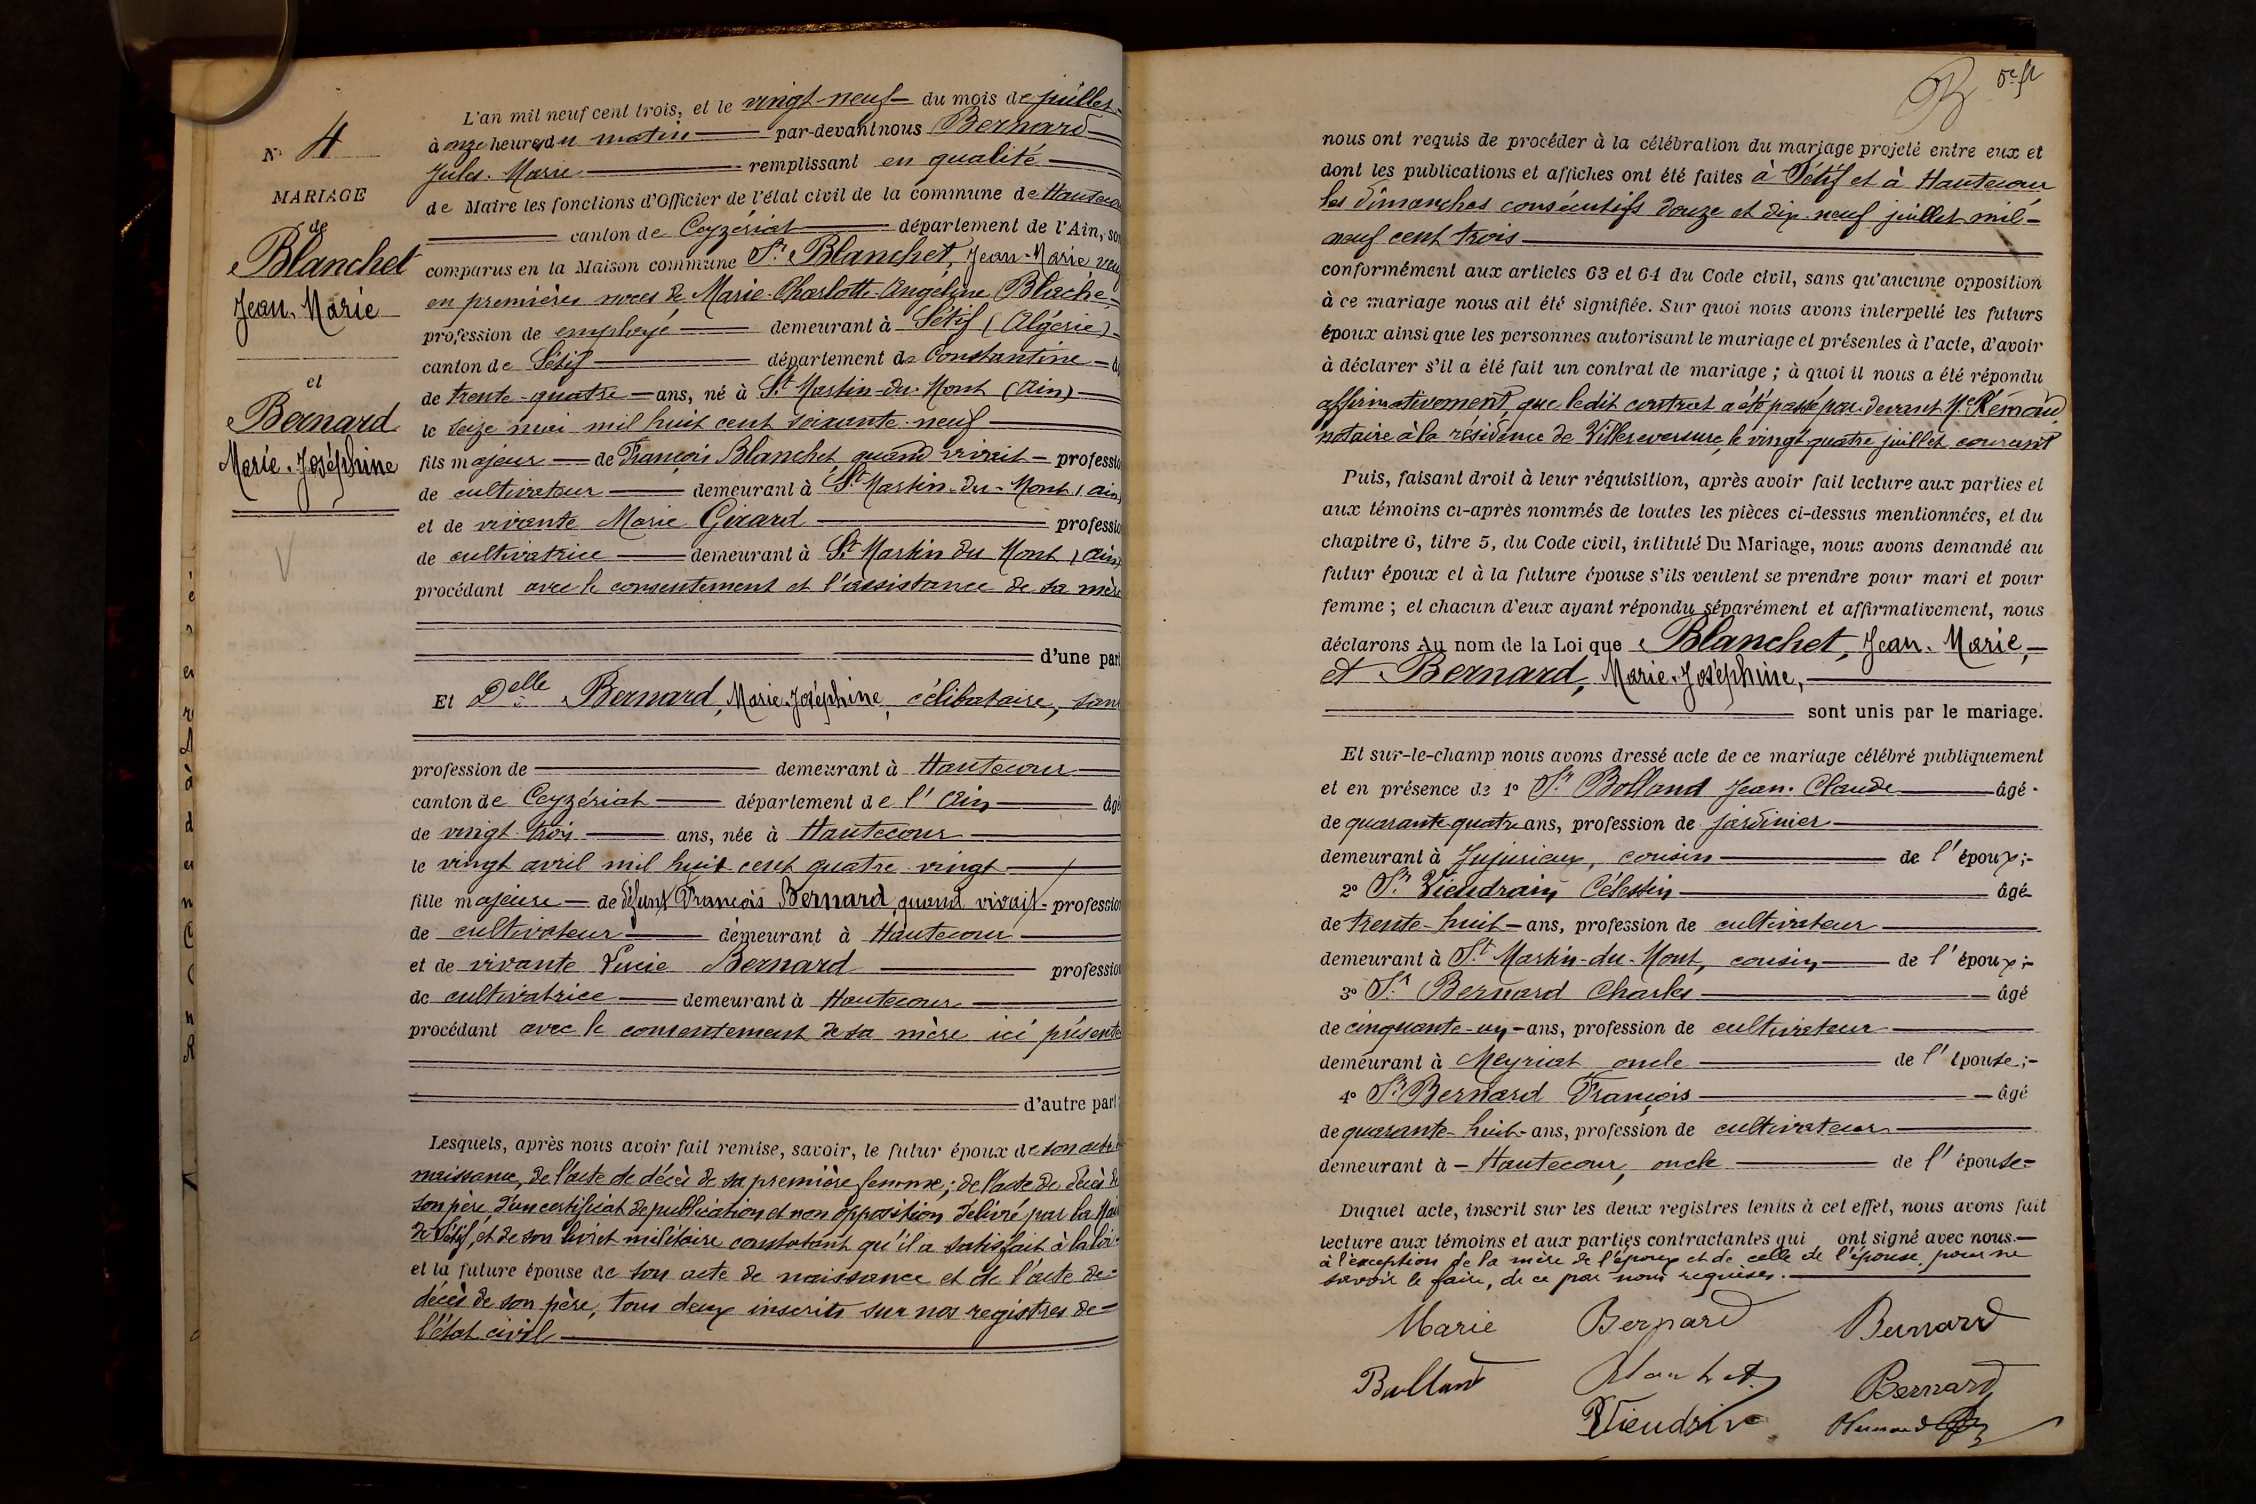 N° 4
MARIAGE
de
Blanchet
Jean-Marie
et
Bernard
Marie-Joséphine
L'an mil neuf cent trois, et le vingt-neuf du mois de juillet
à onze heures du matin par-devant nous Bernard
Jules-Marie remplissant en qualité
de Maire les fonctions d'Officier de l'état civil de la commune de Hautecour
canton de Ceyzériat département de l'Ain, son
comparus en la Maison commune Sr Blanchet, Jean-Marie veuf
en premières noces de Marie-Charlotte-Angéline Blache
profession de employé demeurant à Sétif (Algérie)
canton de Sétif département de Constantine
de trente-quatre ans, né à St Martin-du-Mont (Ain)
le seize mai mil huit cent soixante-neuf
fils majeur de François Blanchet quand vivait professio
de cultivateur demeurant à St Martin-du-Mont (Ain)
et de vivante Marie Girard professio
de cultivatrice demeurant à St Martin du Mont (Ain)
procédant avec le consentement et l'assistance de sa mère
d'une part
Et Delle Bernard, Marie-Joséphine, célibataire, sans
profession de demeurant à Hautecour
canton de Ceyzériat département de l'Ain âgé
de vingt-trois ans, née à Hautecour
le vingt avril mil huit cent quatre-vingt
fille majeure de défunt François Bernard, quand vivait professio
de cultivateur demeurant à Hautecour
et de vivante Lucie Bernard profession
de cultivatrice demeurant à Hautecour
procédant avec le consentement de sa mère ici présente
d'autre part
Lesquels, après nous avoir fait remise, savoir, le futur époux de son acte
naissance, de l'acte de décès de sa première femme; de l'acte de décès de
son père, d'un certificat de publication et non opposition délivré par la Mai
de Sétif, et de son livret militaire constatant qu'il a satisfait à la loi
et la future épouse de son acte de naissance et de l'acte de
décès de son père, tous deux inscrits sur nos registres de
l'état civil
nous ont requis de procéder à la célébration du mariage projeté entre eux et
dont les publications et affiches ont été faites à Sétif et à Hautecour
les dimanches consécutifs douze et dix-neuf juillet mil
neuf cent trois
conformément aux articles 63 et 64 du Code civil, sans qu'aucune opposition
à ce mariage nous ait été signifiée. Sur quoi nous avons interpellé les futurs
époux ainsi que les personnes autorisant le mariage et présentes à l'acte, d'avoir
à déclarer s'il a été fait un contrat de mariage; à quoi il nous a été répondu
affirmativement, que ledit contrat a été passé par-devant Me
notaire à la résidence de Villereversure, le vingt-quatre juillet courant
Puis, faisant droit à leur réquisition, après avoir fait lecture aux parties et
aux témoins ci-après nommés de toutes les pièces ci-dessus mentionnées, et du
chapitre 6, titre 5, du Code civil, intitulé Du Mariage, nous avons demandé au
futur époux et à la future épouse s'ils veulent se prendre pour mari et pour
femme; et chacun d'eux ayant répondu séparément et affirmativement, nous
déclarons Au nom de la Loi que Blanchet, Jean-Marie,
et Bernard, Marie-Joséphine,
sont unis par le mariage.
Et sur-le-champ nous avons dressé acte de ce mariage célébré publiquement
et en présence de 1° Sr Bolland Jean-Claude âgé
de quarante-quatre ans, profession de jardinier
demeurant à Jujurieux, cousin de l'époux;
2° Sr Vieudrin Célestin âgé
de trente-huit ans, profession de cultivateur
demeurant à St Martin-du-Mont, cousin de l'époux;
3° Sr Bernard Charles âgé
de cinquante-un ans, profession de cultivateur
demeurant à Meyriat oncle de l'épouse;
4° Sr Bernard François âgé
de quarante-huit ans, profession de cultivateur
demeurant à Hautecour, oncle de l'épouse
Duquel acte, inscrit sur les deux registres tenus à cet effet, nous avons fait
lecture aux témoins et aux parties contractantes qui ont signé avec nous
à l'exception de la mère de l'époux et de celle de l'épouse pour ne
savoir le faire, de ce par nous requises.
Marie Bernard Bernard
Bolland Blanchet Bernard
Vieudrin Bernard